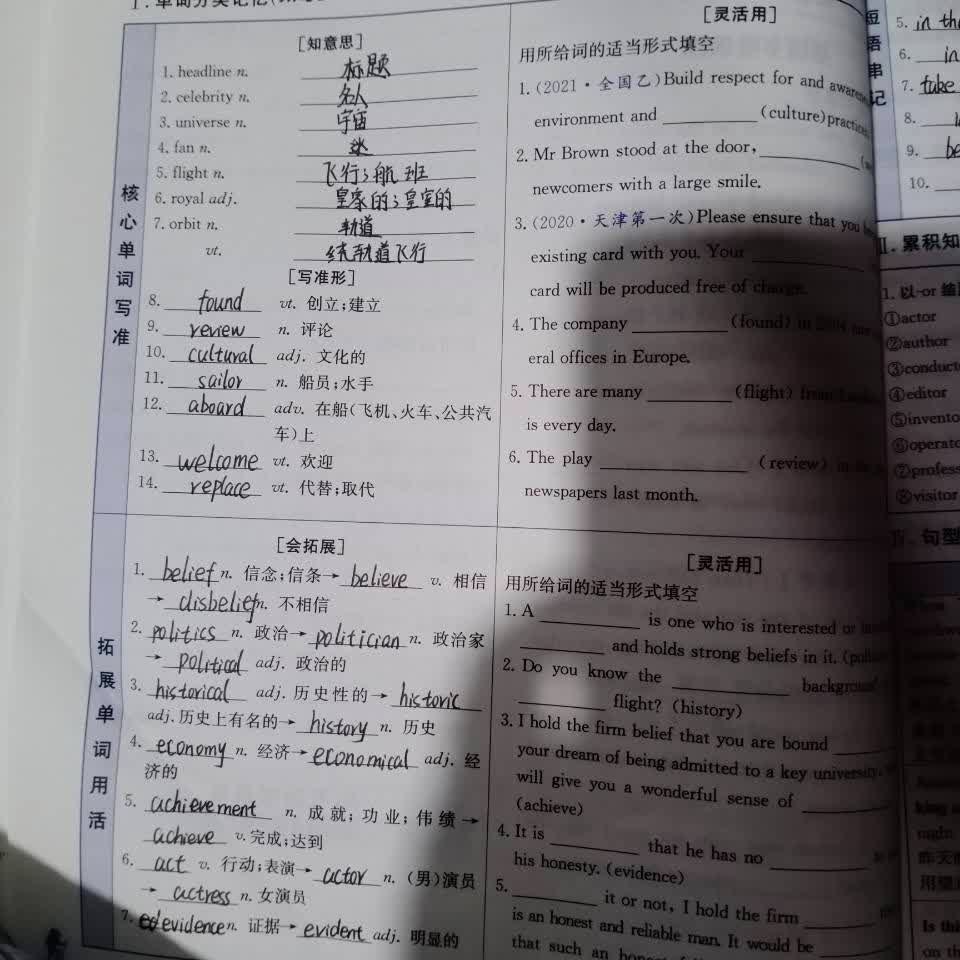 [知意思]
1. headline n. 标题
2. celebrity n. 名人
3. universe n. 宇宙
4. fan n. 迷
5. flight n. 飞行;航班
6. royal adj. 皇家的;皇室的
7. orbit n. 轨道
vt. 绕轨道飞行
[写准形]
8. found vt. 创立;建立
9. review n. 评论
10. cultural adj. 文化的
11. sailor n. 船员;水手
12. aboard adv. 在船(飞机、火车、公共汽
车)上
13. welcome vt. 欢迎
14. replace vt. 代替;取代
核心单词写准
[灵活用]
用所给词的适当形式填空
1. (2021·全国乙)Build respect for and
environment and ________ (culture)
2. Mr Brown stood at the door, ________
newcomers with a large smile.
3. (2020·天津第一次)Please ensure that you
existing card with you. Your ________
card will be produced free of charge.
4. The company ________ (found) in
eral offices in Europe.
5. There are many ________ (flight)
is every day.
6. The play ________ (review)
newspapers last month.
拓展单词用活
[会拓展]
1. belief n. 信念;信条→ believe v. 相信
→ disbelief n. 不相信
2. politics n. 政治→ politician n. 政治家
→ political adj. 政治的
3. historical adj. 历史性的→ historic
adj. 历史上有名的→ history n. 历史
4. economy n. 经济→ economical adj. 经
济的
5. achievement n. 成就;功业;伟绩→
achieve v. 完成;达到
6. act v. 行动;表演→ actor n. (男)演员
→ actress n. 女演员
7. evidence n. 证据→ evident adj. 明显的
[灵活用]
用所给词的适当形式填空
1. A ________ is one who is interested
________ and holds strong beliefs in it.
2. Do you know the ________ background
________ flight? (history)
3. I hold the firm belief that you are bound ________
your dream of being admitted to a key university.
will give you a wonderful sense of ________
(achieve)
4. It is ________ that he has no ________
his honesty. (evidence)
5. ________ it or not, I hold the firm ________
is an honest and reliable man. It would be ________
that such an
短语串记
5. in
6. in
7. take
8.
9. be
10.
累积知
1. 以-or
①actor
②author
③
④editor
⑤
⑥
⑦
⑧visitor
句型